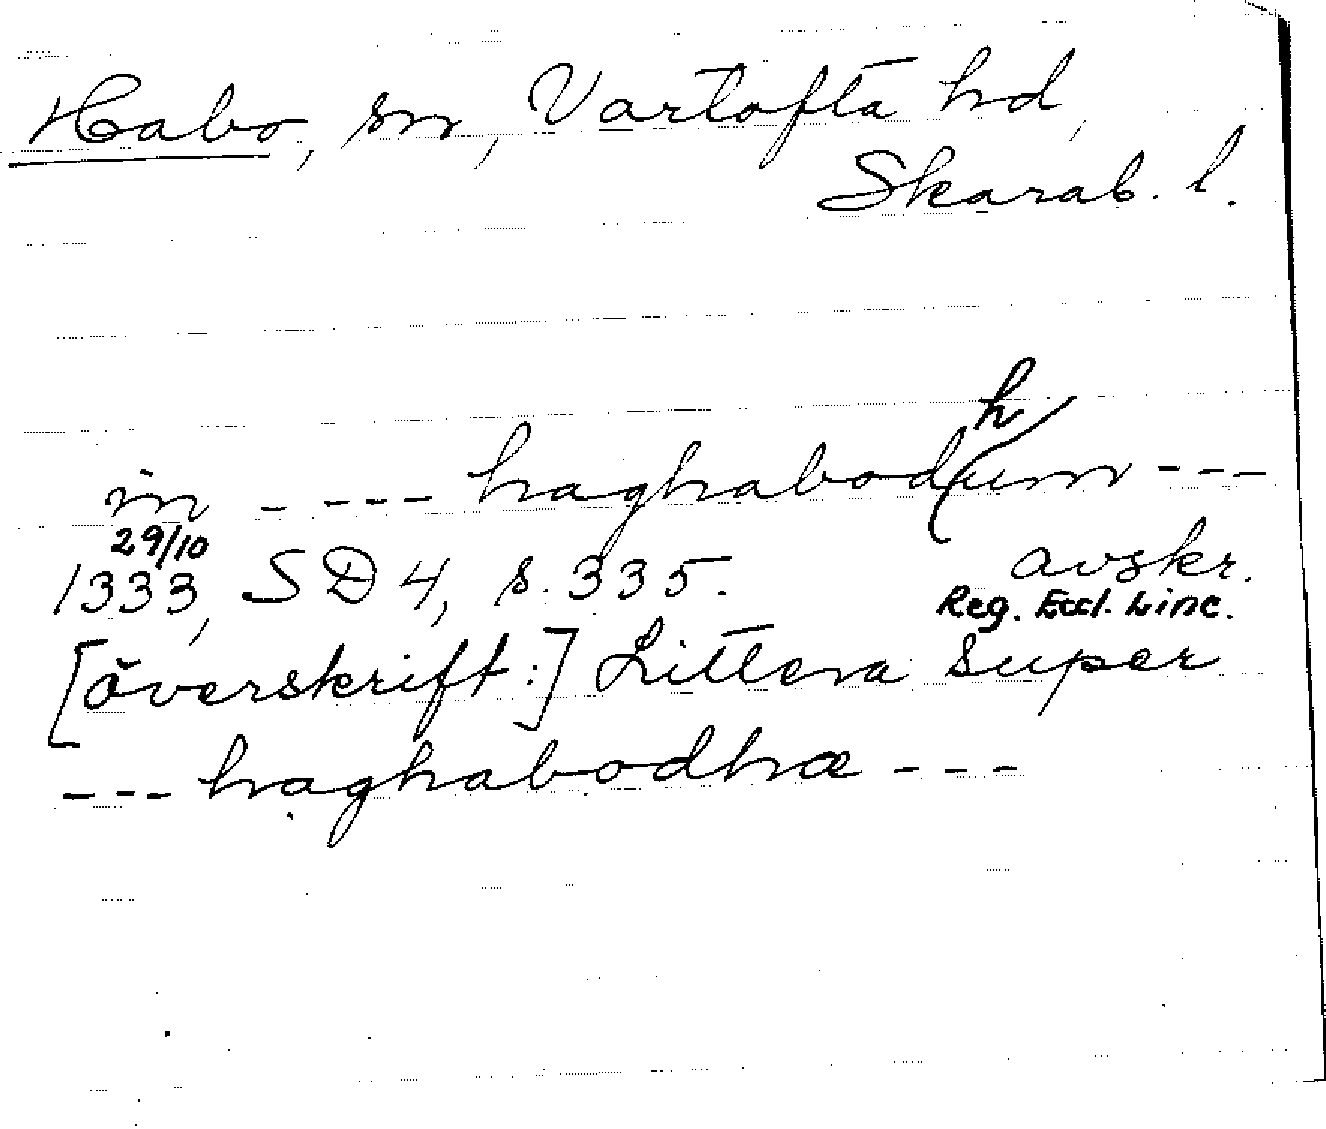 Habo, sn, Vartofta hd,
Skarab. l.
in - --- haghabodhum ---
29/10
1333, SD 4, s. 335. avskr.
Reg. Eccl. Linc.
[överskrift:] Littera super
--- haghabodhæ ---